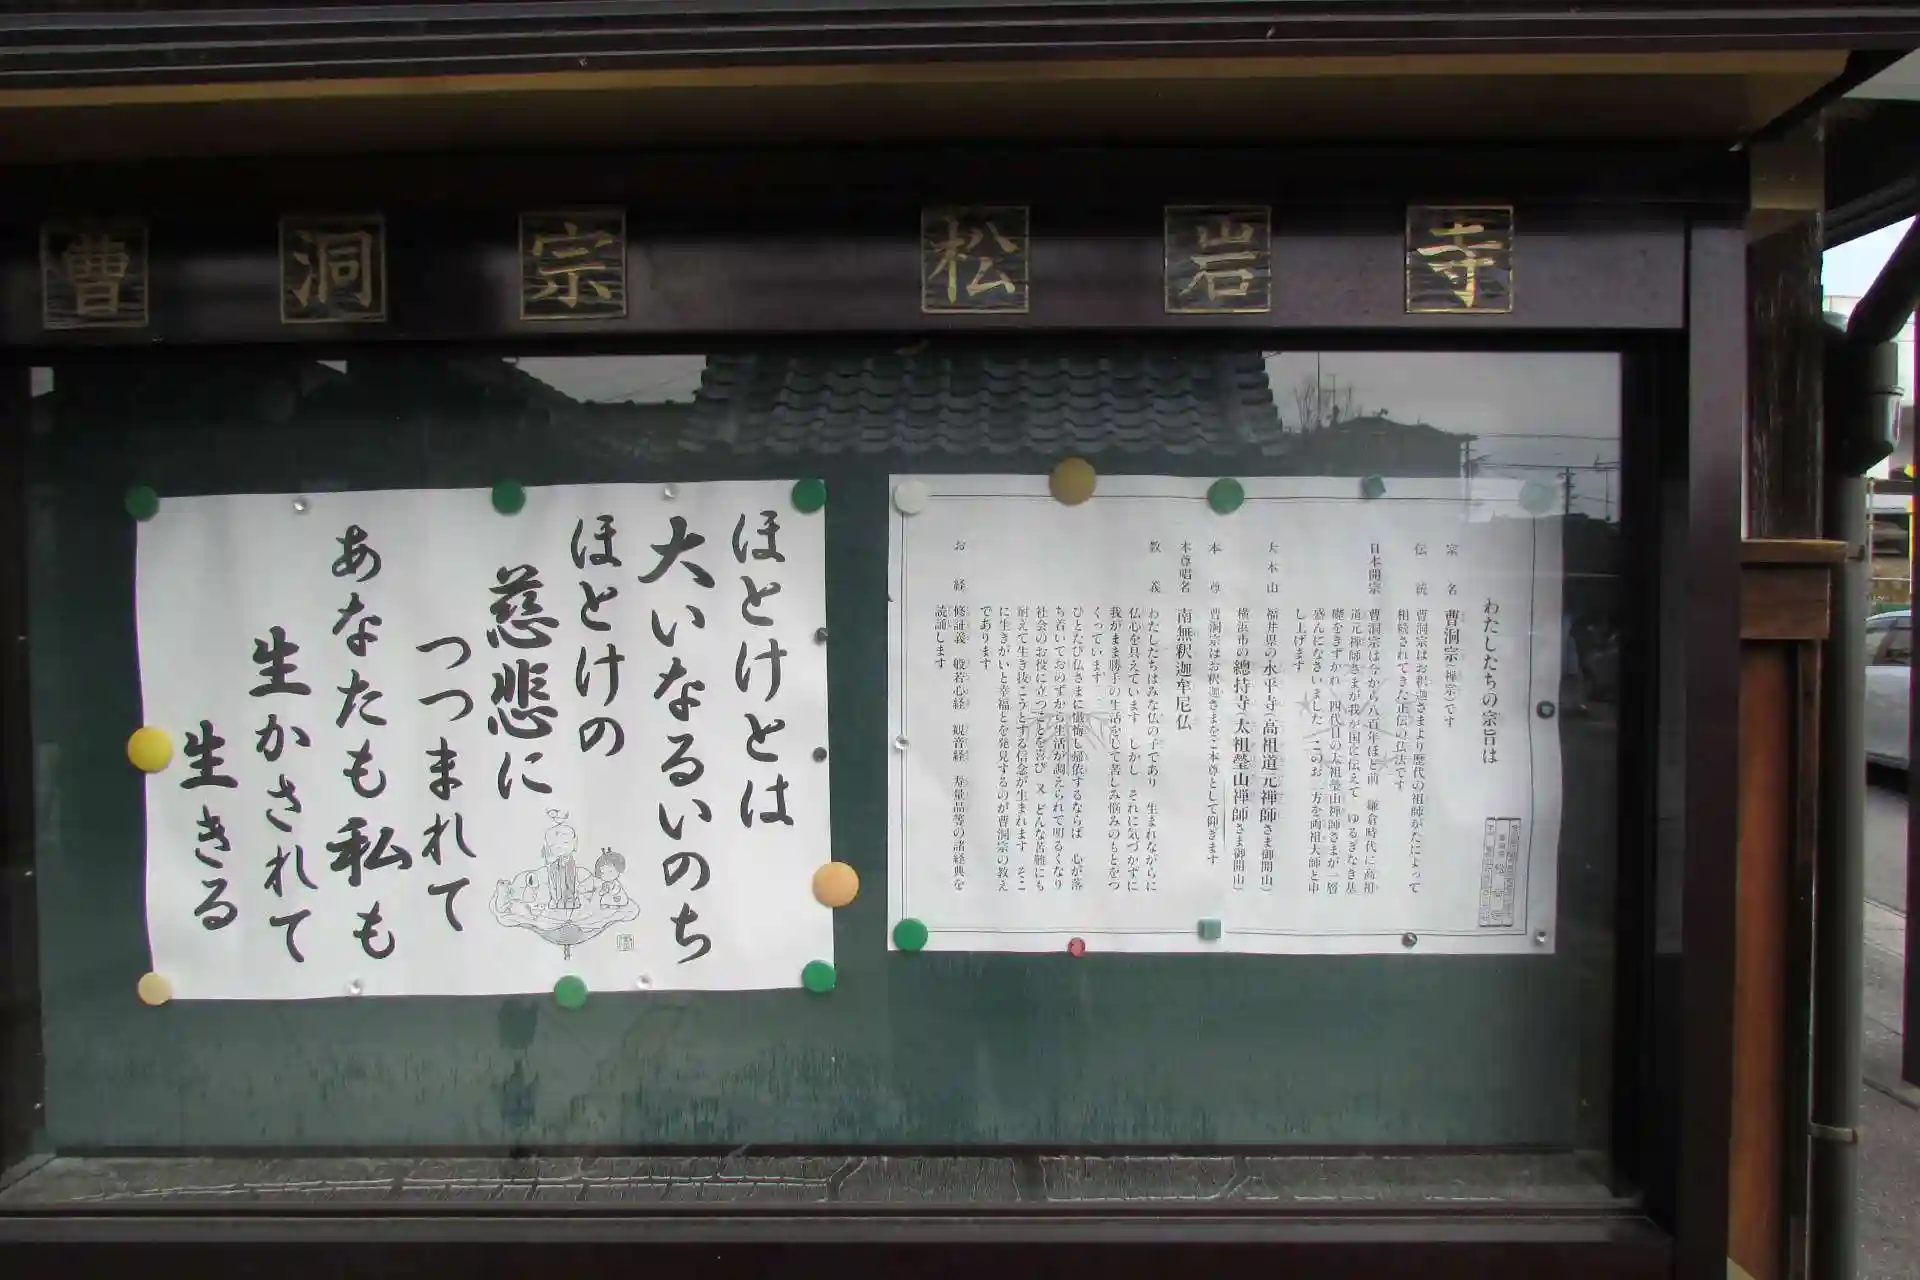 曹洞宗 松岩寺
ほとけとは
大いなるいのち
ほとけの
慈悲に
つつまれて
あなたも私も
生かされて
生きる
わたしたちの宗旨は
宗名 曹洞宗(禅宗)です
伝統 曹洞宗はお釈迦さまより歴代の祖師がたによって
相続されてきた正伝の仏法です
日本開宗 曹洞宗は今から八百年ほど前 鎌倉時代に高祖
道元禅師さまが我が国に伝えて ゆるぎなき基
礎をきずかれ 四代目の太祖瑩山禅師さまが一層
盛んになさいました このお二方を両祖大師と申
し上げます
大本山 福井県の永平寺(高祖道元禅師さま御開山)
横浜市の總持寺(太祖瑩山禅師さま御開山)
本尊 曹洞宗はお釈迦さまをご本尊として仰ぎます
本尊唱名 南無釈迦牟尼仏
教義 わたしたちはみな仏の子であり 生まれながらに
仏心を具えています しかし それに気づかずに
我がまま勝手の生活をして苦しみ悩みのもとをつ
くっています
ひとたび仏さまに懺悔し帰依するならば 心が落
ち着いておのずから生活が調えられて明るくなり
社会のお役に立つことを喜び 又 どんな苦難にも
耐えて生き抜こうとする信念が生まれます そこ
に生きがいと幸福とを発見するのが曹洞宗の教え
であります
お経 修証義 般若心経 観音経 寿量品等の諸経典を
読誦します